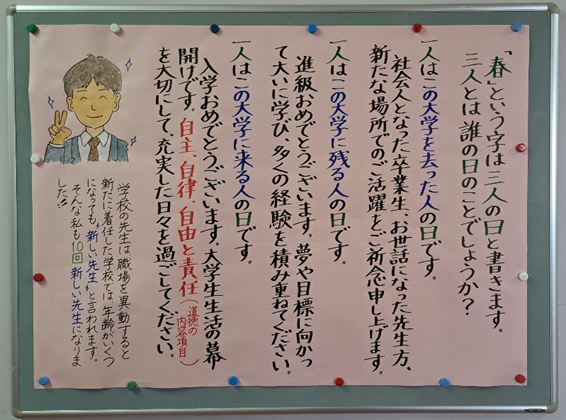 「春」という字は三人の日と書きます。
三人とは誰の日のことでしょうか？
一人はこの大学を去った人の日です。
社会人となった卒業生、お世話になった先生方、
新たな場所でのご活躍をご祈念申し上げます。
一人はこの大学に残る人の日です。
進級おめでとうございます。夢や目標に向かっ
て大いに学び、多くの経験を積み重ねてください。
一人はこの大学に来る人の日です。
入学おめでとうございます。大学生生活の幕
開けです。自主、自律、自由と責任（道徳の内容項目）
を大切にして、充実した日々を過ごしてください。
学校の先生は職場を異動すると
新たに着任した学校では、年齢がいくつ
になっても、"新しい先生"と言われます。
そんな私も10回"新しい先生"になりま
した!!